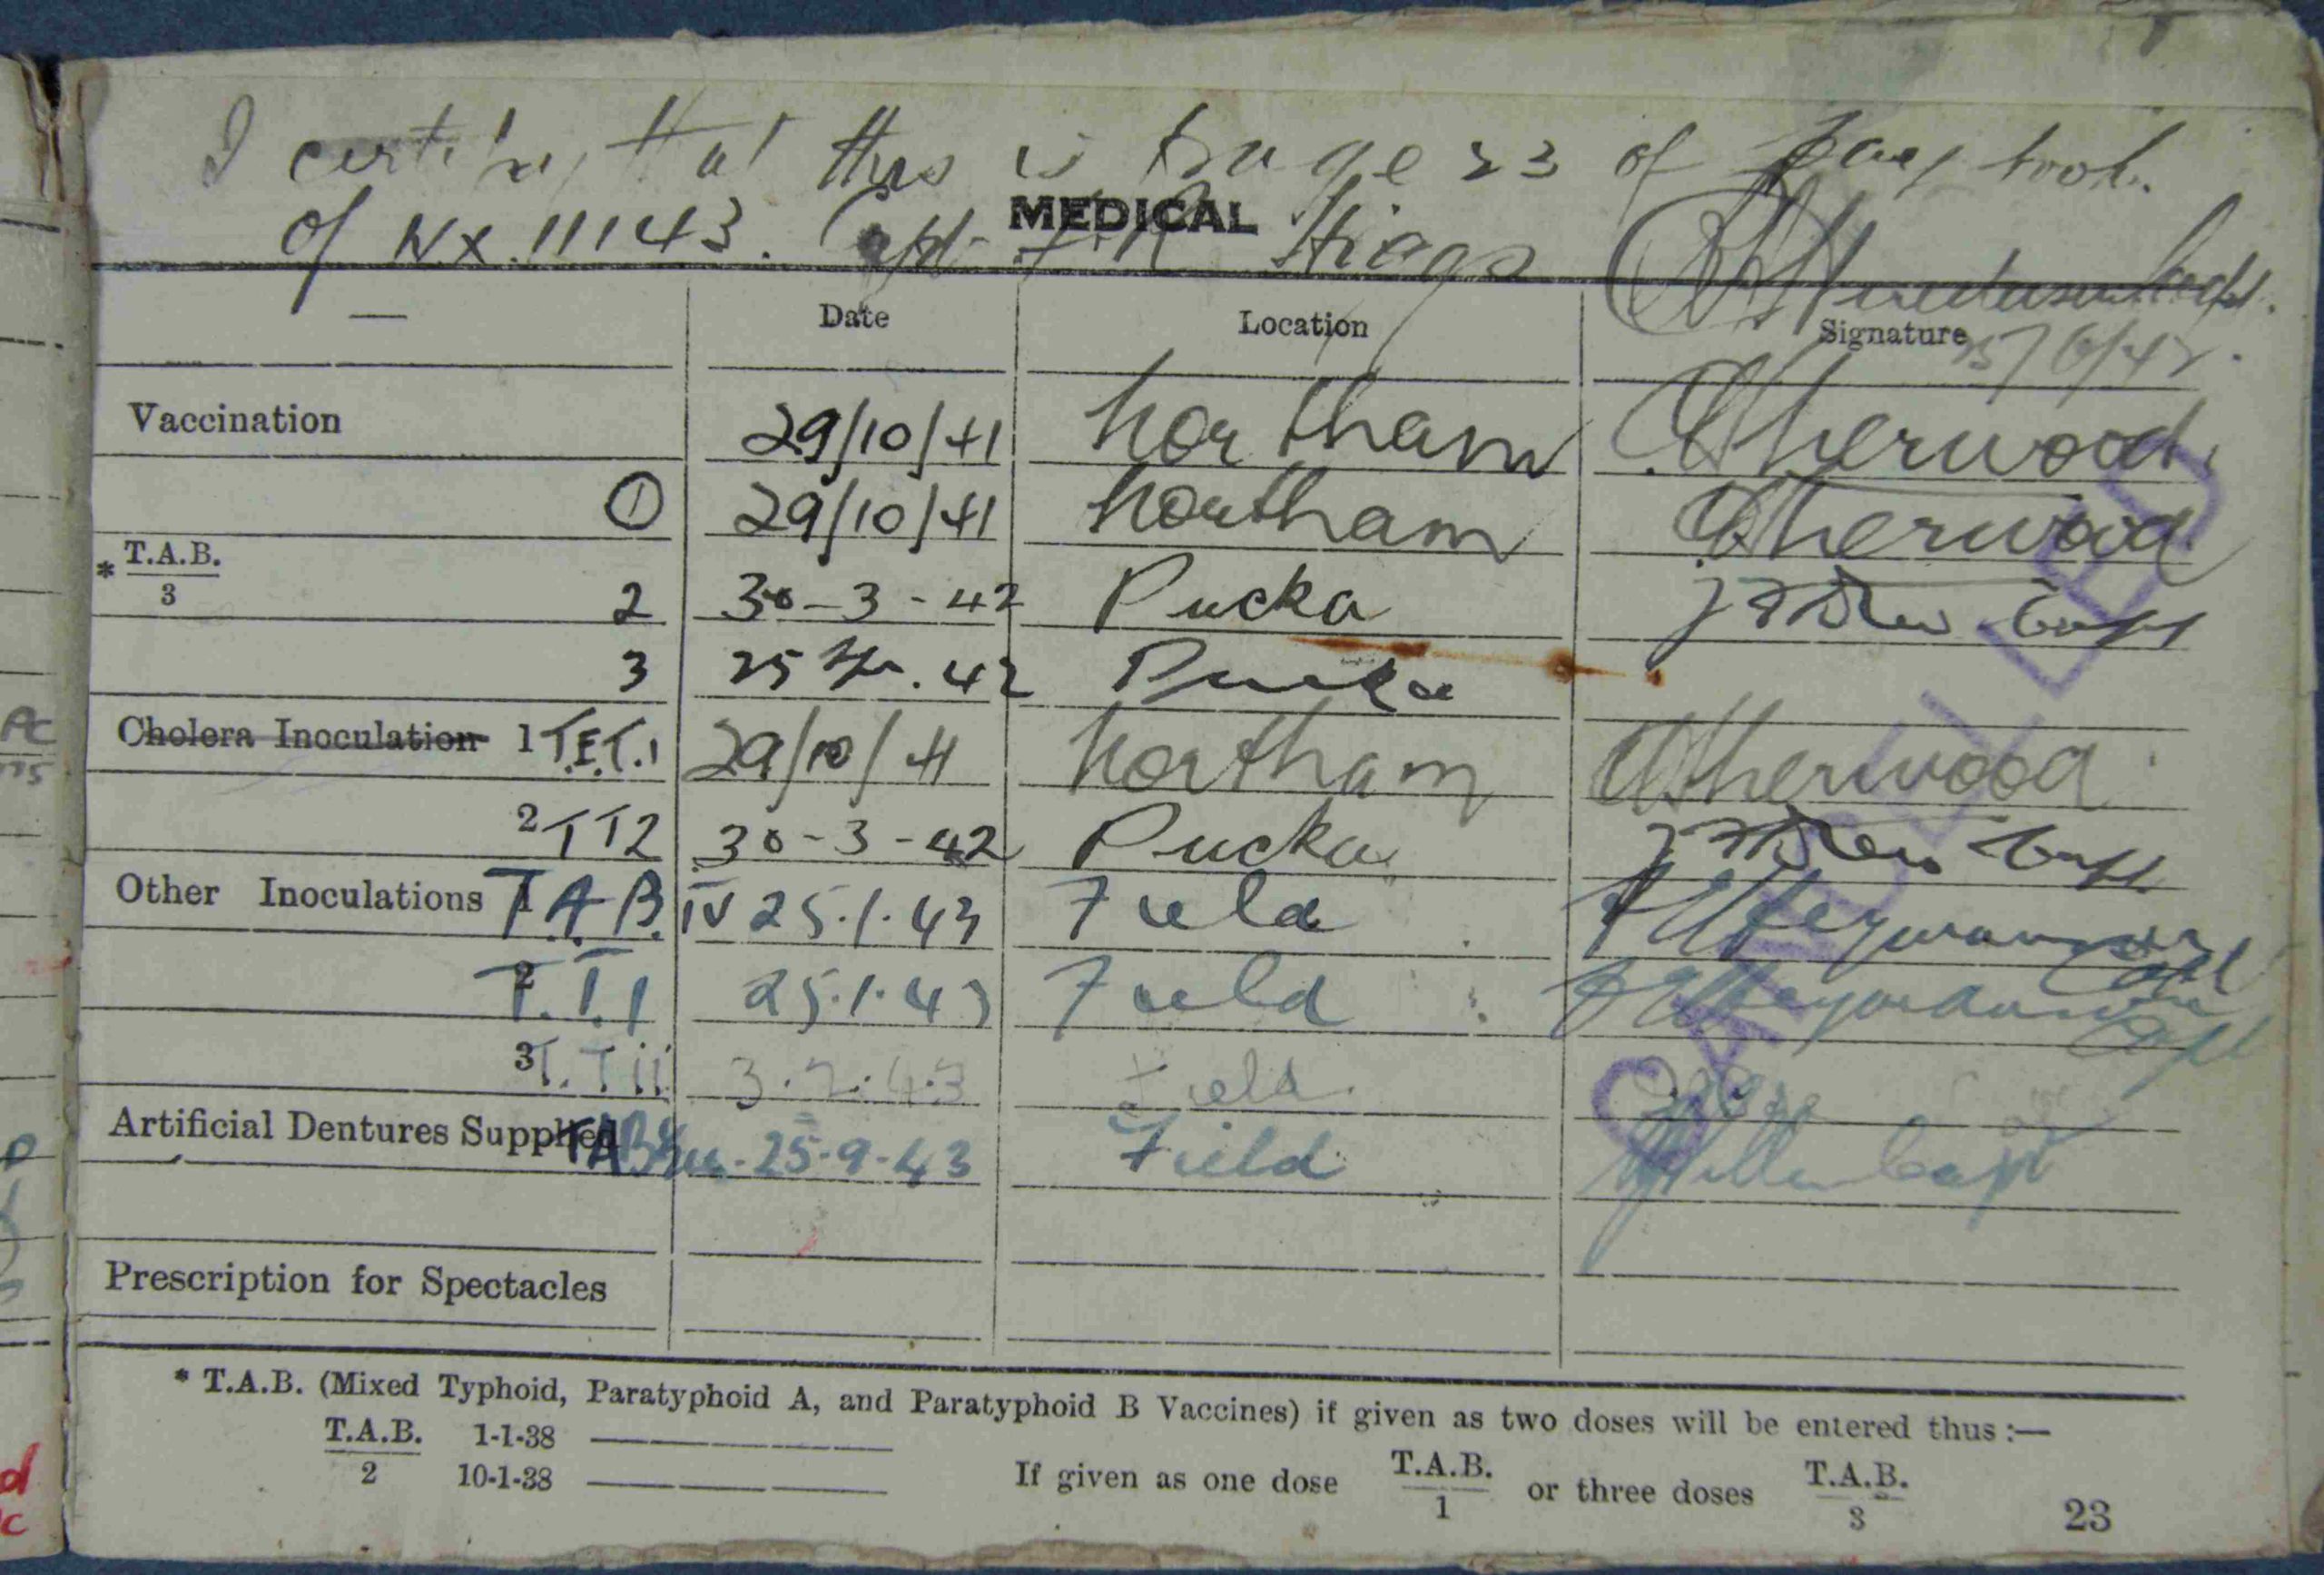 I certify that this is page 23 of Pay book
of NX.11143. Capt. Higgs
MEDICAL
— Date Location Signature
Vaccination 29/10/41 Northam Sherwood
1 29/10/41 Northam Sherwood
* T.A.B.
3
2 30-3-42 Pucka Capt
3 25 42 Pucka
Cholera Inoculation 1 T.E.T.1 29/10/41 Northam Sherwood
2 TT2 30-3-42 Pucka Capt
Other Inoculations 1 T.A.B. IV 25.1.43 Field Capt
2 T.T.1 25.1.43 Field Capt
3 T.T ii 3.2.43 Field
Artificial Dentures Supplied TAB 25-9-43 Field Capt
Prescription for Spectacles
* T.A.B. (Mixed Typhoid, Paratyphoid A, and Paratyphoid B Vaccines) if given as two doses will be entered thus :—
T.A.B. 1-1-38
2 10-1-38
If given as one dose T.A.B. 1 or three doses T.A.B. 3
23
CANCELLED